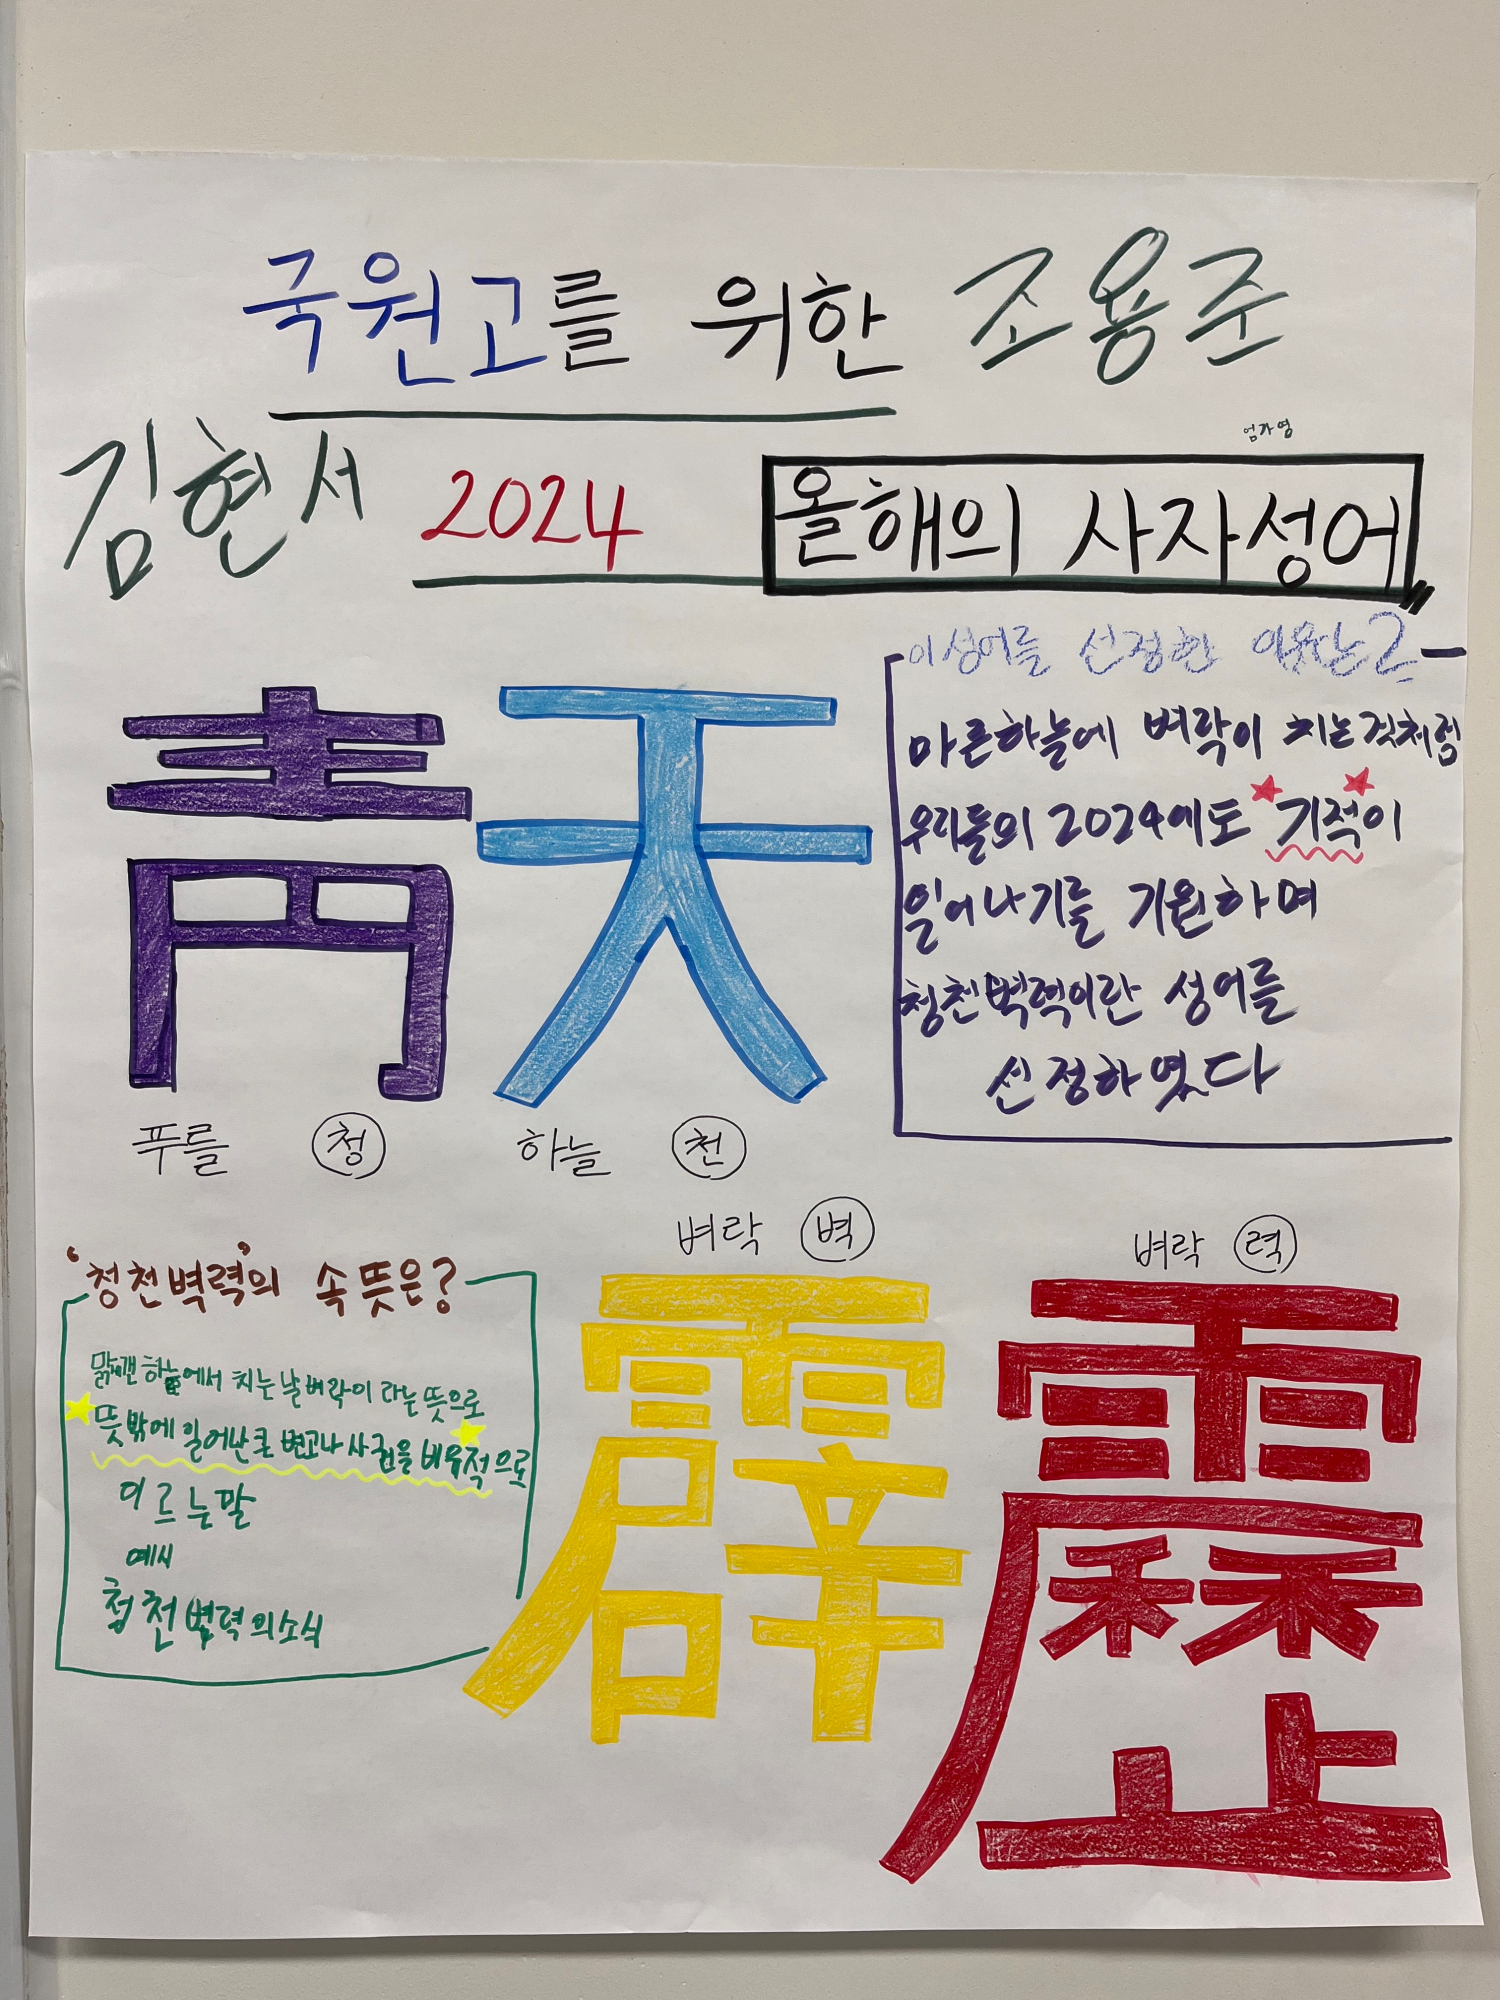 국원고를 위한 조용준
김현서 2024 올해의 사자성어
엄가영
靑 天
푸를 청 하늘 천
이 성어를 선정한 이유는?
마른하늘에 벼락이 치는것처럼
우리들의 2024에도 기적이
일어나기를 기원하며
청천벽력이란 성어를
선정하였다
벼락 벽 벼락 력
霹 靂
'청천벽력'의 속뜻은?
맑게갠 하늘에서 치는 날벼락이 라는 뜻으로
뜻밖에 일어난 큰 변고나 사건을 비유적으로
이르는말
예시
청천벽력의 소식